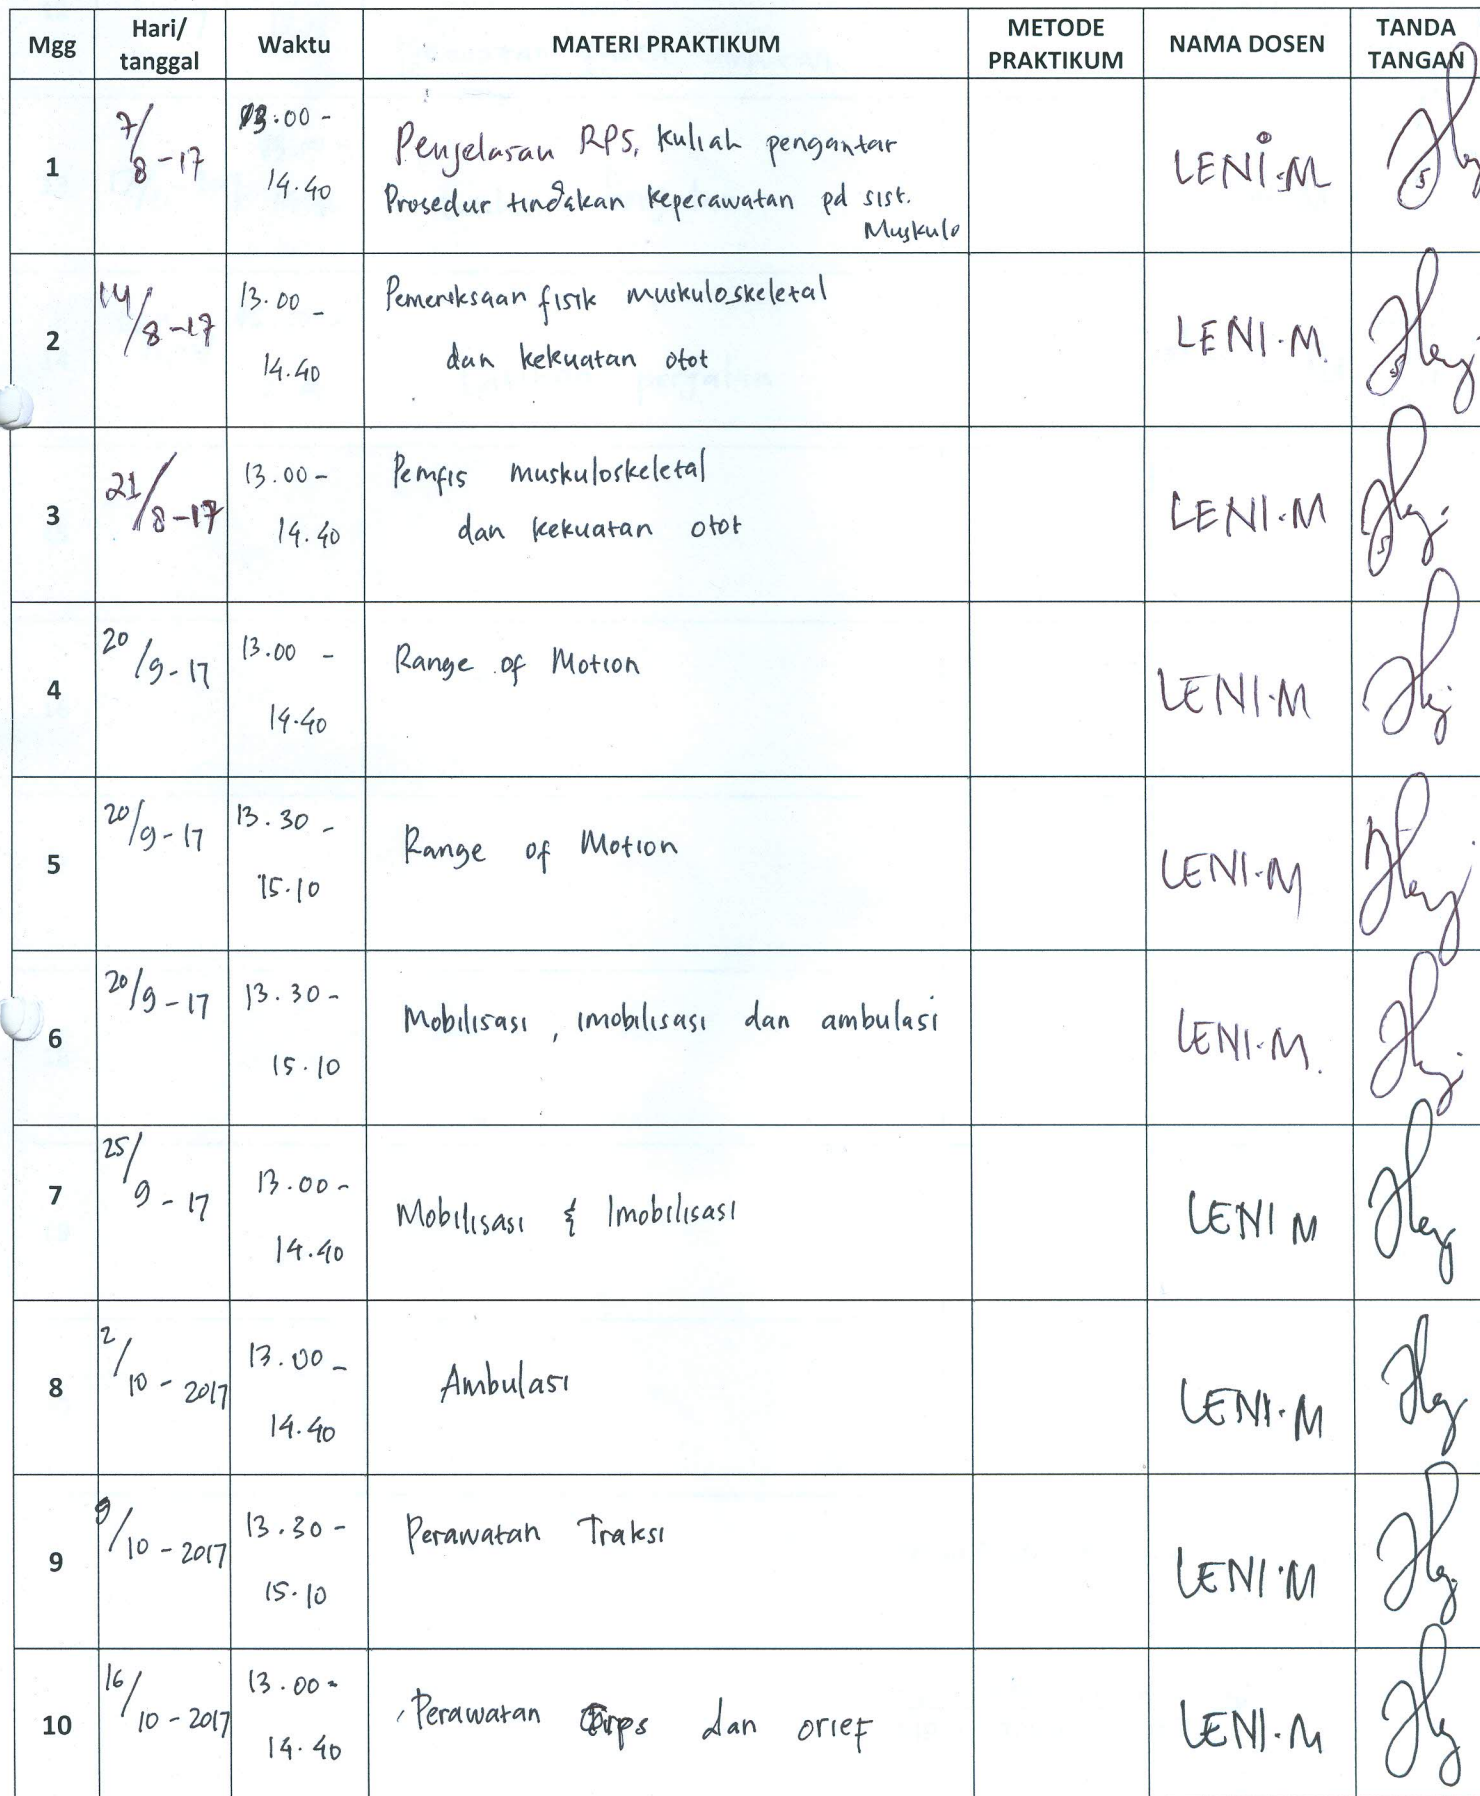 Mgg Hari/ tanggal Waktu MATERI PRAKTIKUM METODE PRAKTIKUM NAMA DOSEN TANDA TANGAN
1 7/8-17 13.00 - 14.40 Penjelasan RPS, kuliah pengantar
Prosedur tindakan keperawatan pd sist.
Muskulo
LENI.M
2 14/8-17 13.00 - 14.40 Pemeriksaan fisik muskuloskeletal
dan kekuatan otot
LENI.M.
3 21/8-17 13.00 - 14.40 Pemfis muskuloskeletal
dan kekuatan otot
LENI.M
4 20/9-17 13.00 - 14.40 Range of Motion LENI.M
5 20/9-17 13.30 - 15.10 Range of Motion LENI.M
6 20/9-17 13.30 - 15.10 Mobilisasi, imobilisasi dan ambulasi LENI.M.
7 25/9-17 13.00 - 14.40 Mobilisasi & Imobilisasi LENI M
8 2/10-2017 13.00 - 14.40 Ambulasi LENI.M
9 9/10-2017 13.30 - 15.10 Perawatan Traksi LENI.M
10 16/10-2017 13.00 - 14.40 Perawatan dan orief LENI.M